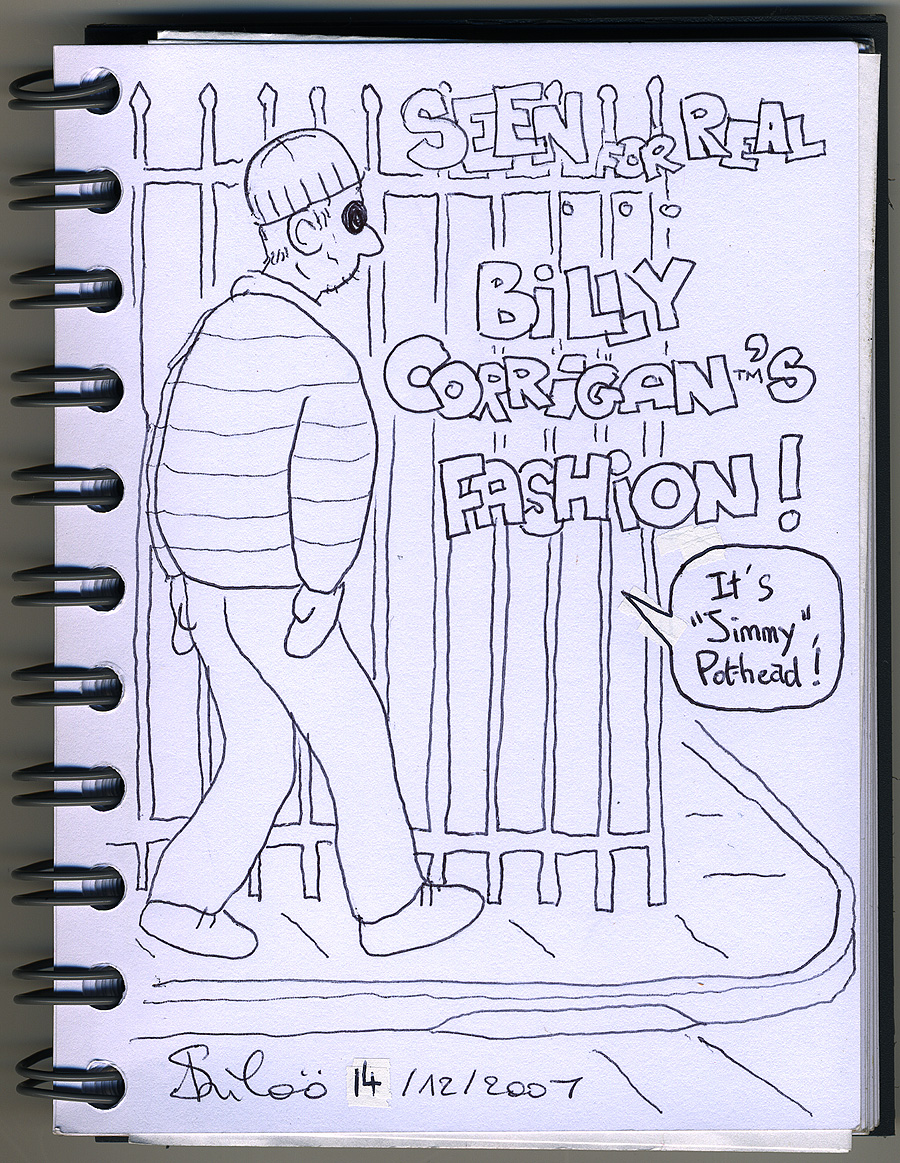 SEEN FOR REAL
BiLLY
CORRiGAN™'S
FASHiON!
It's
"Jimmy",
Pot-head!
14/12/2007